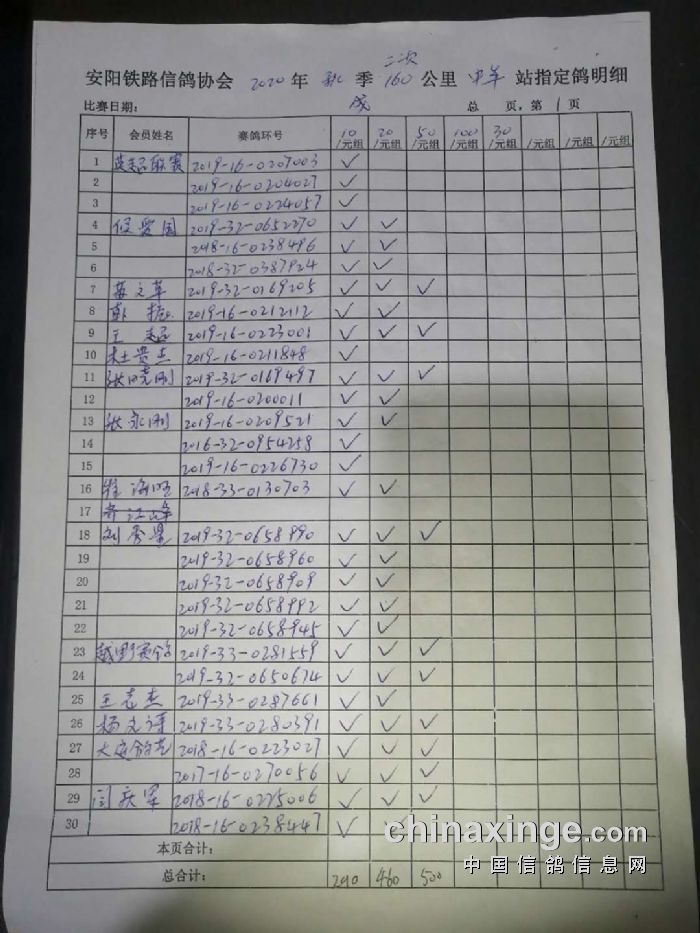 二次
安阳铁路信鸽协会 2020 年 秋 季 160 公里 中牟 站指定鸽明细
比赛日期: 成 总 页,第 1 页
序号 会员姓名 赛鸽环号 10/元组 20/元组 50/元组 100/元组 30/元组 /元组 /元组 /元组 /元组
1 英超联赛 2019-16-0207003 ✓
2 2019-16-0204027 ✓
3 2019-16-0224057 ✓
4 侯爱国 2019-32-0652270 ✓ ✓
5 2018-16-0238496 ✓ ✓
6 2018-32-0387924 ✓ ✓
7 文革 2019-32-0169205 ✓ ✓ ✓
8 2019-16-0212112 ✓ ✓
9 王超 2019-16-0223001 ✓ ✓ ✓
10 杜贵杰 2019-16-0211848 ✓
11 张晓刚 2019-32-0169497 ✓ ✓ ✓
12 2019-16-0200011 ✓ ✓
13 张永刚 2019-16-0209521 ✓ ✓
14 2016-32-0954258 ✓
15 2019-16-0226730 ✓
16 海旺 2018-33-0130703 ✓ ✓
17
18 刘秀景 2019-32-0658990 ✓ ✓ ✓
19 2019-32-0658960 ✓ ✓
20 2019-32-0658909 ✓ ✓
21 2019-32-0658992 ✓ ✓
22 2019-32-0658945 ✓ ✓
23 越野赛鸽 2019-33-0281559 ✓ ✓ ✓
24 2019-32-0650674 ✓ ✓ ✓
25 王志杰 2019-33-0287661 ✓ ✓
26 杨文譯 2019-33-0280391 ✓ ✓ ✓
27 2018-16-0223027 ✓ ✓ ✓
28 2017-16-0270056 ✓ ✓ ✓
29 闫庆军 2018-16-0225006 ✓ ✓ ✓
30 2018-16-0238447 ✓ ✓
本页合计:
总合计: 290 460 500
chinaxinge.com
中国信鸽信息网